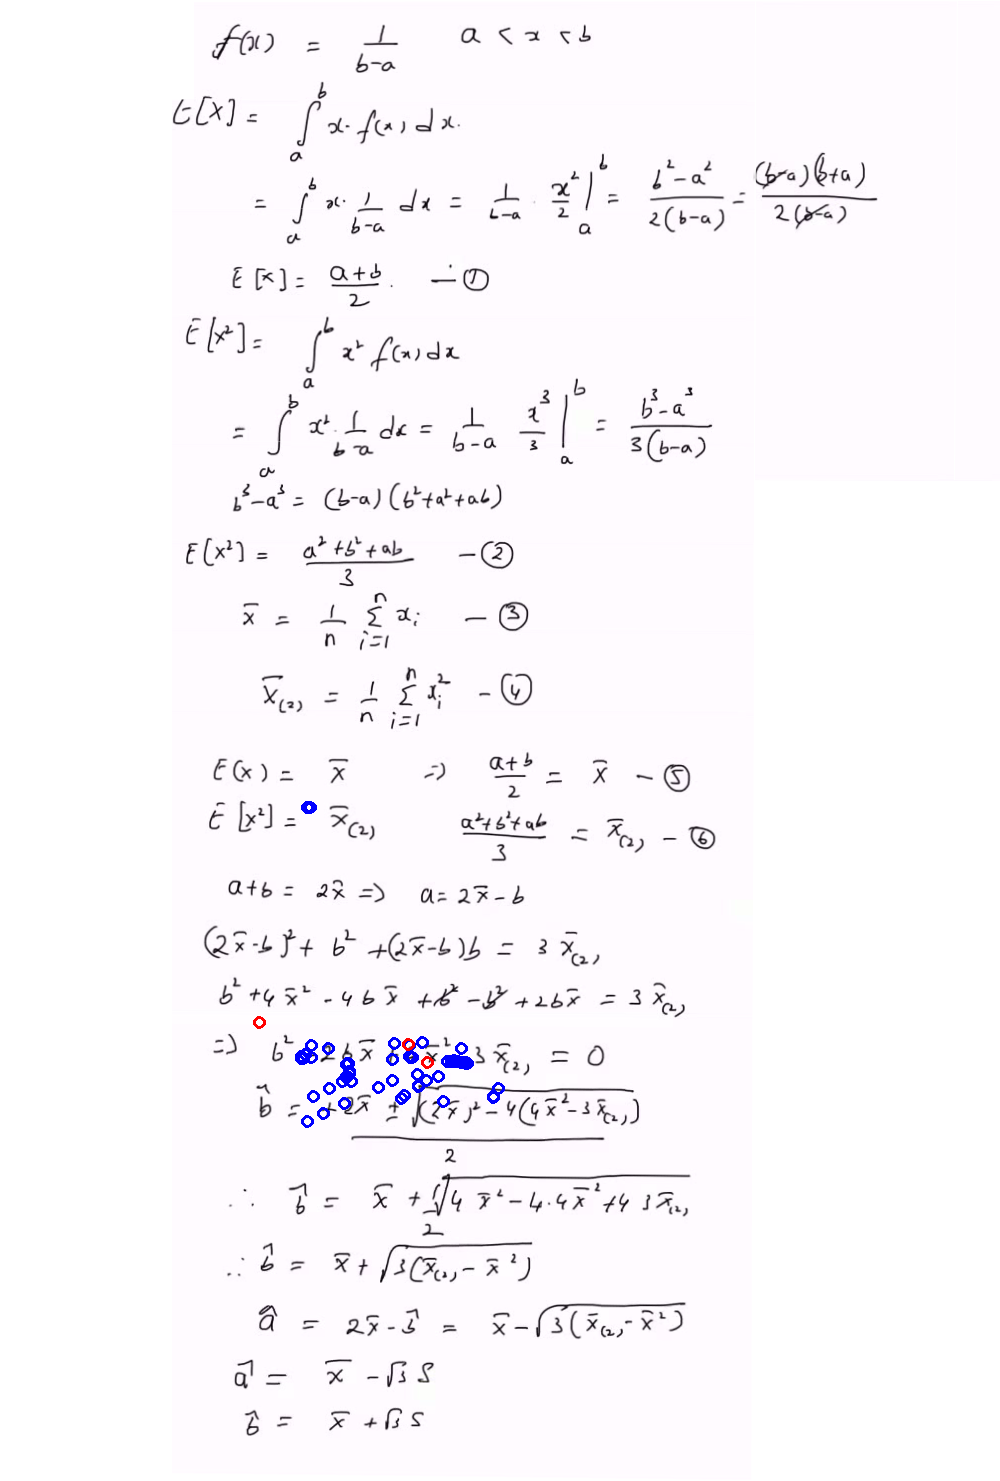 f(x) = 1/(b-a)   a < x < b
E[X] = ∫_a^b x · f(x) dx.
= ∫_a^b x · 1/(b-a) dx = 1/(b-a) · x²/2 |_a^b = (b² - a²)/(2(b-a)) = (b-a)(b+a)/(2(b-a))
E[x] = (a+b)/2 . — ①
E[x²] = ∫_a^b x² f(x) dx
= ∫_a^b x² · 1/(b-a) dx = 1/(b-a) x³/3 |_a^b = (b³ - a³)/(3(b-a))
b³ - a³ = (b-a)(b² + a² + ab)
E[x²] = (a² + b² + ab)/3 — ②
x̄ = 1/n Σ_{i=1}^n x_i — ③
x̄_(2) = 1/n Σ_{i=1}^n x_i² — ④
E(x) = x̄ ⇒ (a+b)/2 = x̄ — ⑤
E[x²] = x̄_(2)   (a² + b² + ab)/3 = x̄_(2) — ⑥
a+b = 2x̄ ⇒ a = 2x̄ - b
(2x̄-b)² + b² + (2x̄-b)b = 3 x̄_(2)
b² + 4x̄² - 4bx̄ + b² - b² + 2bx̄ = 3 x̄_(2)
⇒ b² 2bx̄ x̄² 3x̄_(2) = 0
b̂ = (+2x̄ ± √((2x̄)² - 4(4x̄² - 3x̄_(2))))/2
∴ b̂ = x̄ + √(4x̄² - 4·4x̄² + 4 3x̄_(2))/2
∴ b̂ = x̄ + √(3(x̄_(2) - x̄²))
â = 2x̄ - b̂ = x̄ - √(3(x̄_(2) - x̄²))
â = x̄ - √3 S
b̂ = x̄ + √3 S